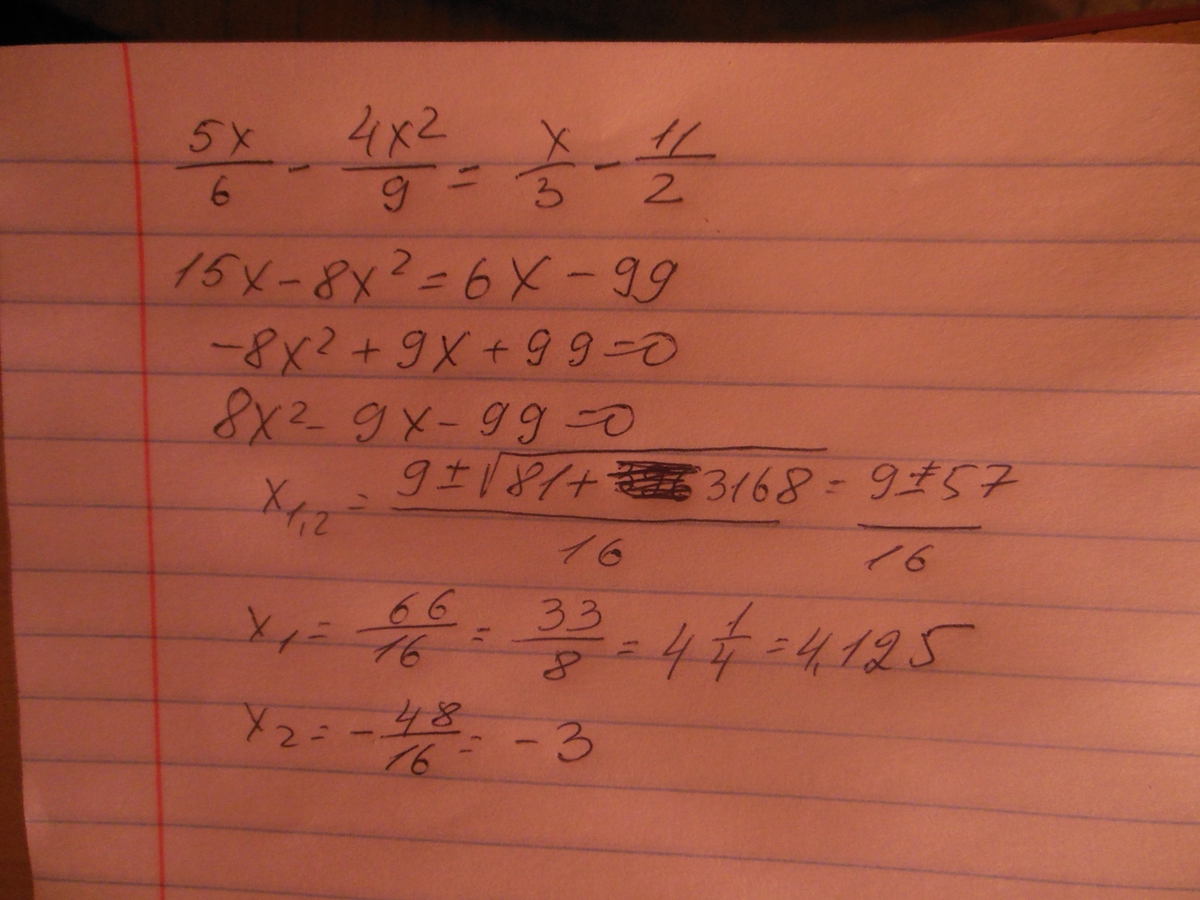 5x/6 - 4x²/9 = x/3 - 11/2
15x - 8x² = 6x - 99
-8x² + 9x + 99 = 0
8x² - 9x - 99 = 0
x₁,₂ = (9 ± √(81 + 3168))/16 = (9 ± 57)/16
x₁ = 66/16 = 33/8 = 4 1/4 = 4,125
x₂ = -48/16 = -3